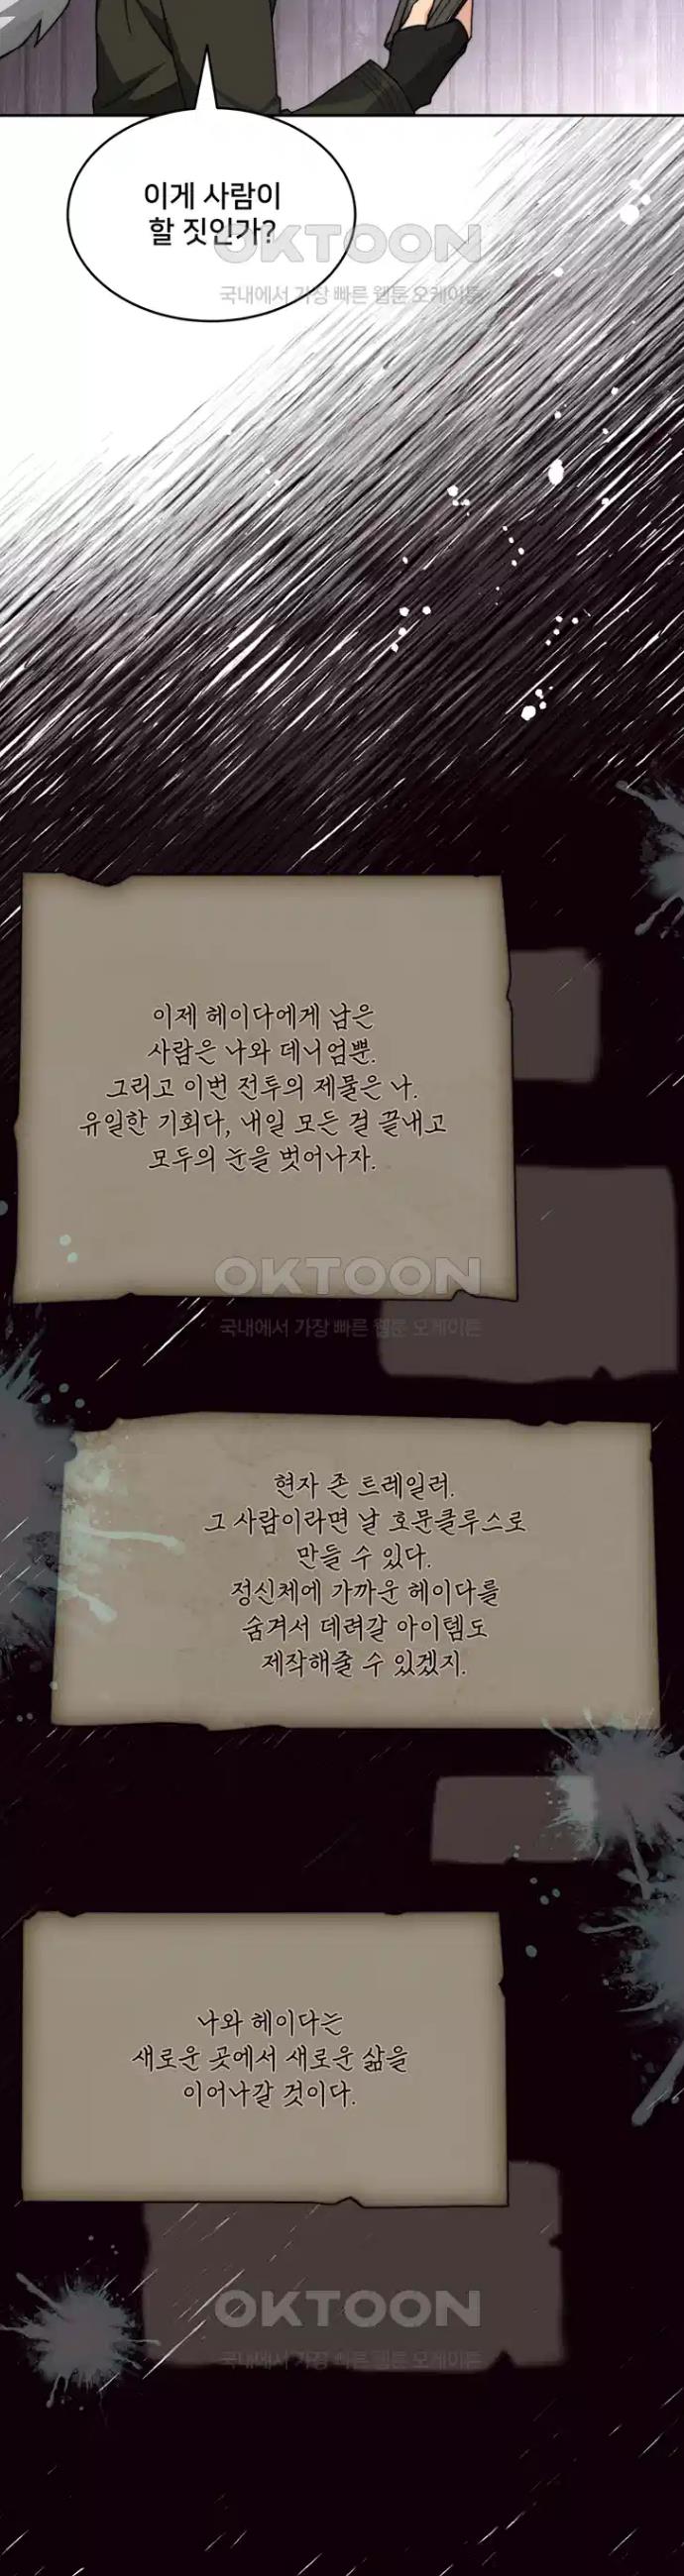 이게 사람이
할 짓인가?
OKTOON
국내에서 가장 빠른 웹툰 오케이툰
이제 헤이다에게 남은
사람은 나와 데니엄뿐.
그리고 이번 전투의 제물은 나.
유일한 기회다, 내일 모든 걸 끝내고
모두의 눈을 벗어나자.
OKTOON
국내에서 가장 빠른 웹툰 오케이툰
현자 존 트레일러.
그 사람이라면 날 호문클루스로
만들 수 있다.
정신체에 가까운 헤이다를
숨겨서 데려갈 아이템도
제작해줄 수 있겠지.
나와 헤이다는
새로운 곳에서 새로운 삶을
이어나갈 것이다.
OKTOON
국내에서 가장 빠른 웹툰 오케이툰